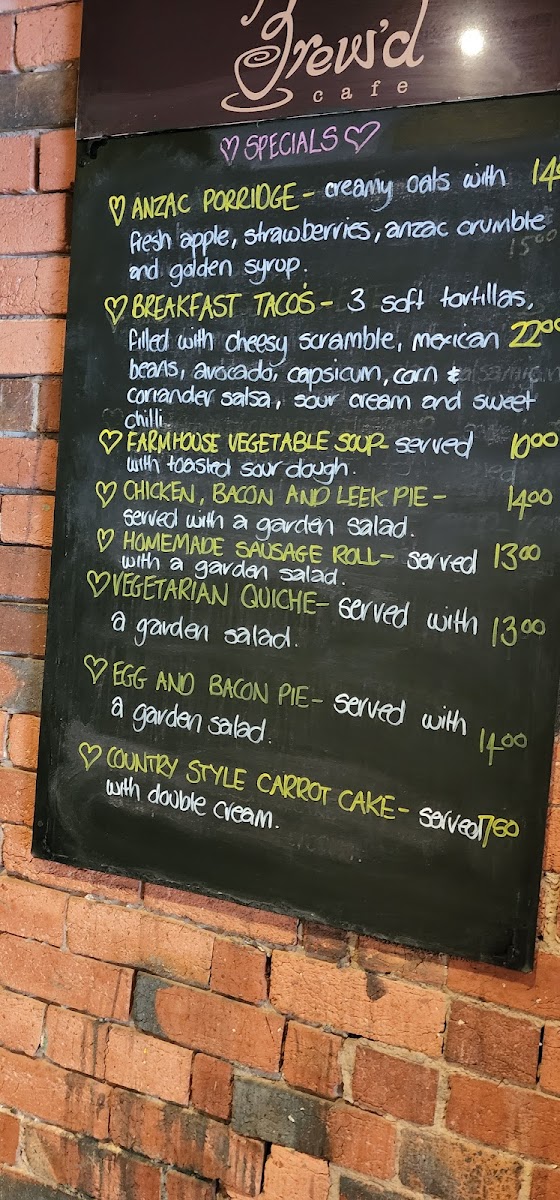 Brew'd
cafe
♡ SPECIALS ♡
♡ ANZAC PORRIDGE - creamy oats with 14
fresh apple, strawberries, anzac crumble
and golden syrup.
♡ BREAKFAST TACO'S - 3 soft tortillas,
filled with cheesy scramble, mexican 22⁰⁰
beans, avocado, capsicum, corn &
coriander salsa, sour cream and sweet
chilli.
♡ FARMHOUSE VEGETABLE SOUP - served 10⁰⁰
with toasted sour dough.
♡ CHICKEN, BACON AND LEEK PIE - 14⁰⁰
served with a garden salad.
♡ HOMEMADE SAUSAGE ROLL - served 13⁰⁰
with a garden salad.
♡ VEGETARIAN QUICHE - served with 13⁰⁰
a garden salad.
♡ EGG AND BACON PIE - served with 14⁰⁰
a garden salad.
♡ COUNTRY STYLE CARROT CAKE - served 7⁶⁰
with double cream.